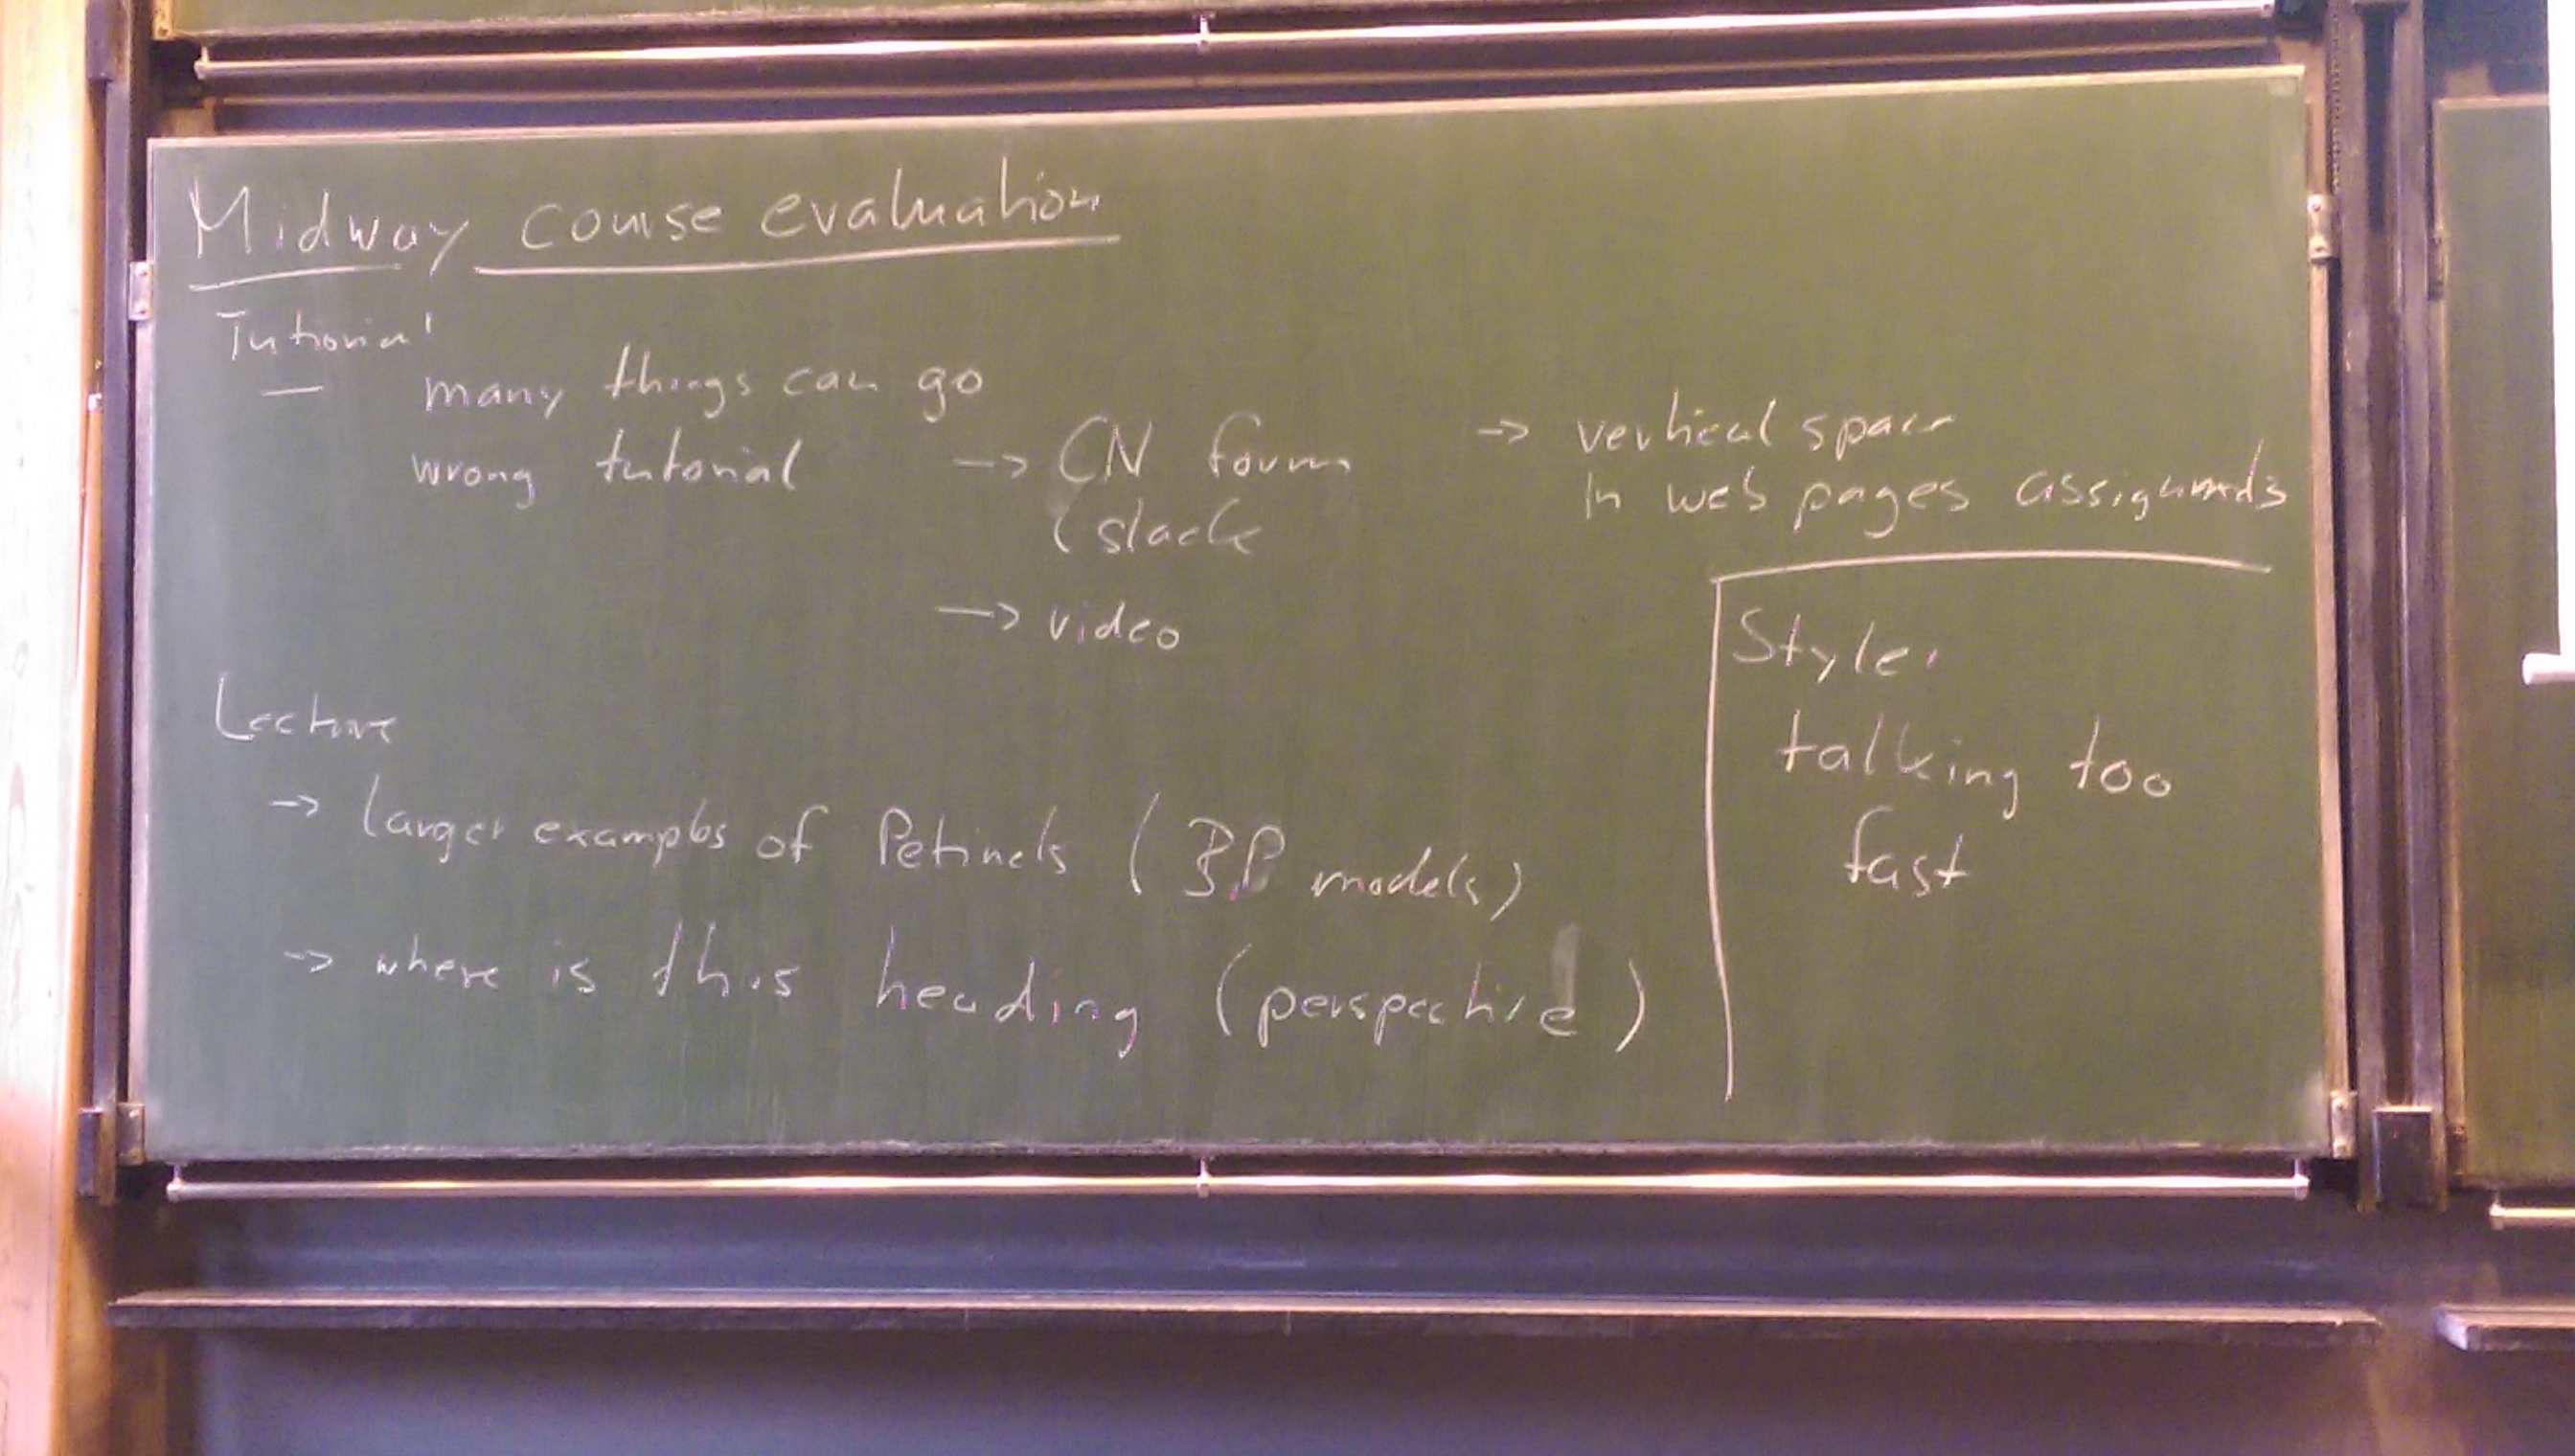 Midway course evaluation
Tutorial
— many things can go
wrong tutorial
-> CN forum
(slack
-> video
-> vertical space
In web pages assignments
Style:
talking too
fast
Lecture
-> larger examples of Petinets (BP models)
-> where is this heading (perspective)